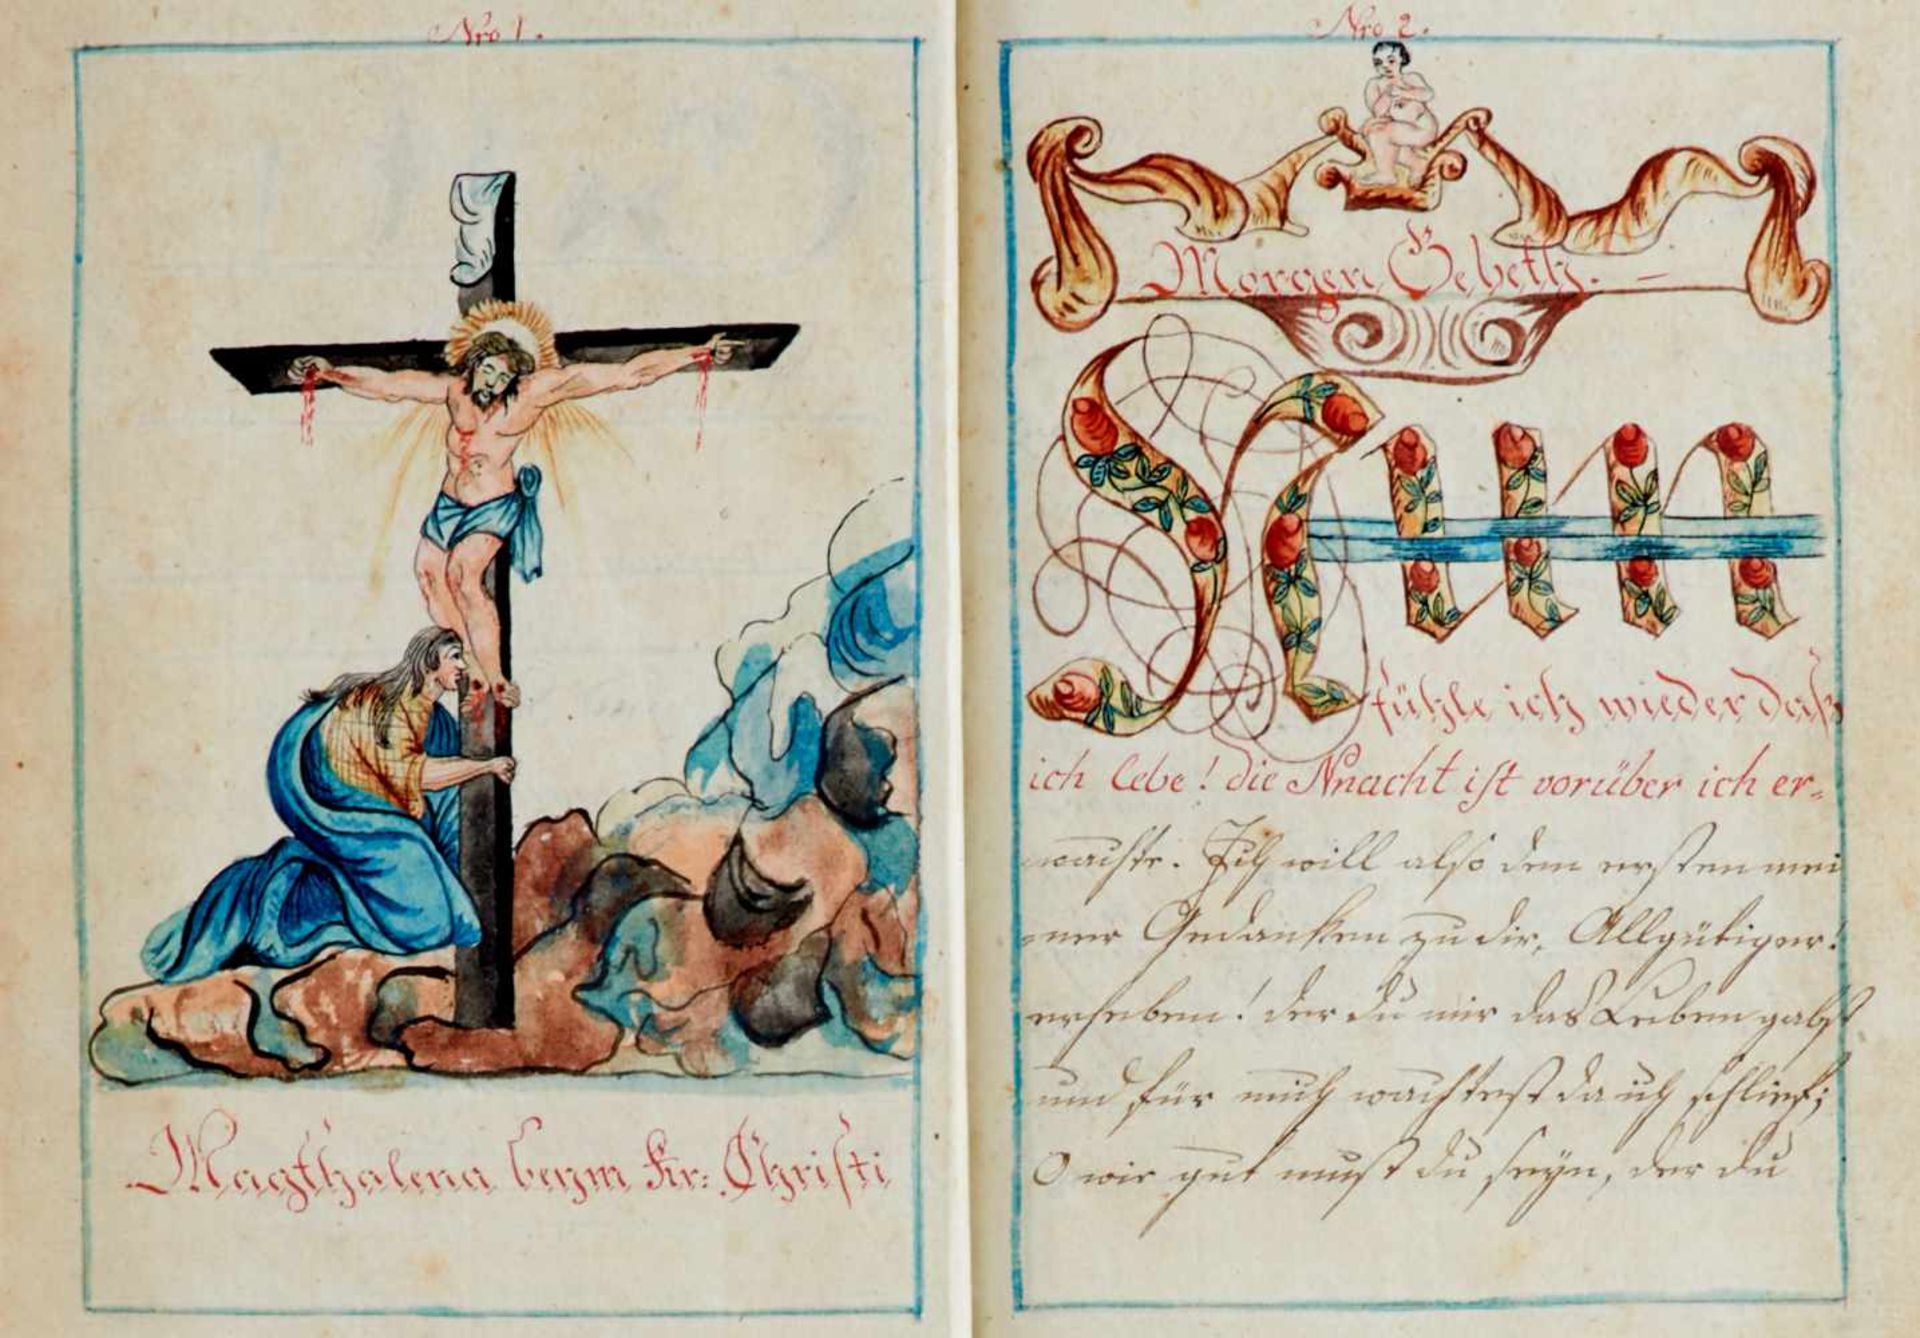 Nro 1.
Magthalena beym Kr: Christi
Nro 2.
Morgen Gebeth. —
Nun
fühle ich wieder daß
ich lebe! die Nnacht ist vorüber ich er=
wachte. Ich will also den ersten mei
=ner Gedanken zu dir, Allgütiger!
erheben! der du mir das Leben gabst
und für mich wachtest da ich schlief;
O wie gut must du seyn, der du